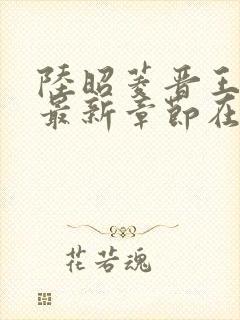 陸昭菱晋王
最新章節在
花若魂